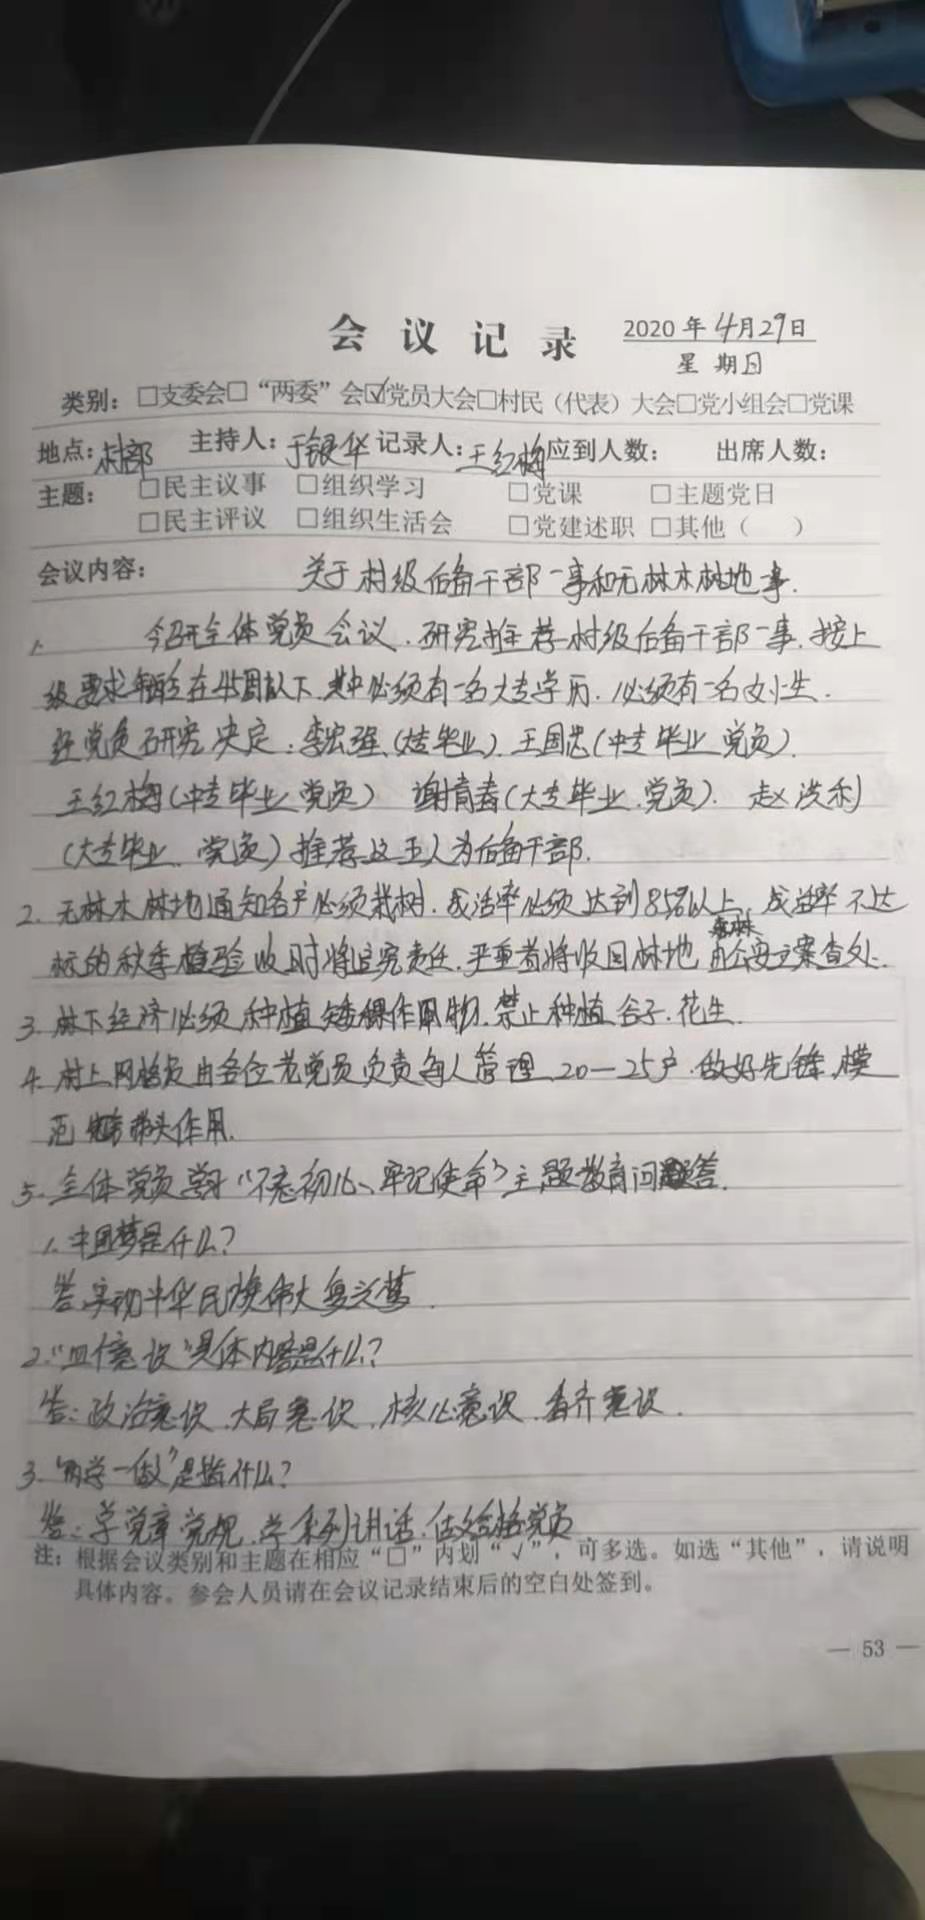 会议记录 2020年4月29日
星期日
类别：□支委会□“两委”会☑党员大会□村民（代表）大会□党小组会□党课
地点：村部 主持人：于银华 记录人：王红梅 应到人数： 出席人数：
主题： □民主议事 □组织学习 □党课 □主题党日
□民主评议 □组织生活会 □党建述职 □其他（ ）
会议内容： 关于村级后备干部一事和无林木林地事.
1. 今召开全体党员会议.研究推荐村级后备干部一事.按上
级要求年龄在45周以下.其中必须有一名大专学历.必须有一名女生.
经党员研究决定：李宏强、(大专毕业).王国忠(中专毕业 党员).
王红梅(中专毕业 党员) 谢青春(大专毕业.党员). 赵洪利
(大专毕业.党员)推荐这五人为后备干部.
2. 无林木林地通知各户必须栽树.成活率必须达到85%以上.成活率不达
标的秋季检验收时将追究责任.严重者将收回林地 由森林公安立案查处.
3. 林下经济必须种植矮棵作物.禁止种植谷子.花生.
4. 村上网格员由各位老党员负责每人管理20—25户.做好先锋.模
范带头作用.
5. 全体党员学习“不忘初心、牢记使命”主题教育问题答.
1. 中国梦是什么？
答.实现中华民族伟大复兴梦.
2.“四个意识”具体内容是什么？
答：政治意识.大局意识.核心意识.看齐意识.
3.“两学一做”是指什么？
答：学党章党规.学系列讲话.做合格党员
注：根据会议类别和主题在相应“□”内划“√”，可多选。如选“其他”，请说明
具体内容。参会人员请在会议记录结束后的空白处签到。
— 53 —